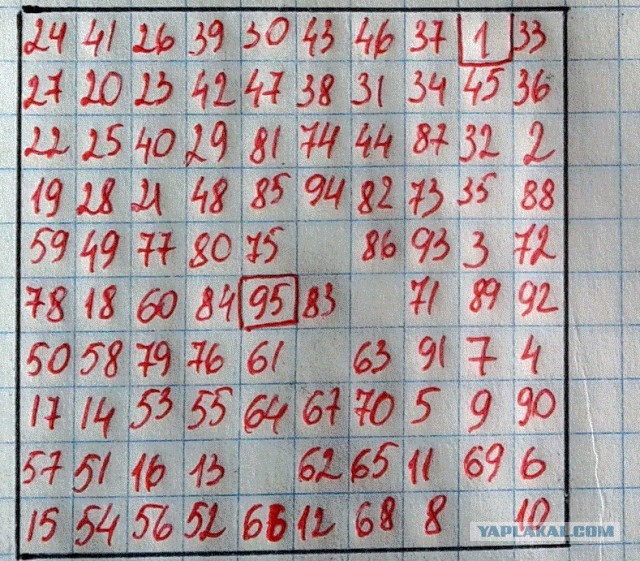 24 41 26 39 30 43 46 37 1 33
27 20 23 42 47 38 31 34 45 36
22 25 40 29 81 74 44 87 32 2
19 28 21 48 85 94 82 73 35 88
59 49 77 80 75 86 93 3 72
78 18 60 84 95 83 71 89 92
50 58 79 76 61 63 91 7 4
17 14 53 55 64 67 70 5 9 90
57 51 16 13 62 65 11 69 6
15 54 56 52 66 12 68 8 10
YAPLAKAL.COM